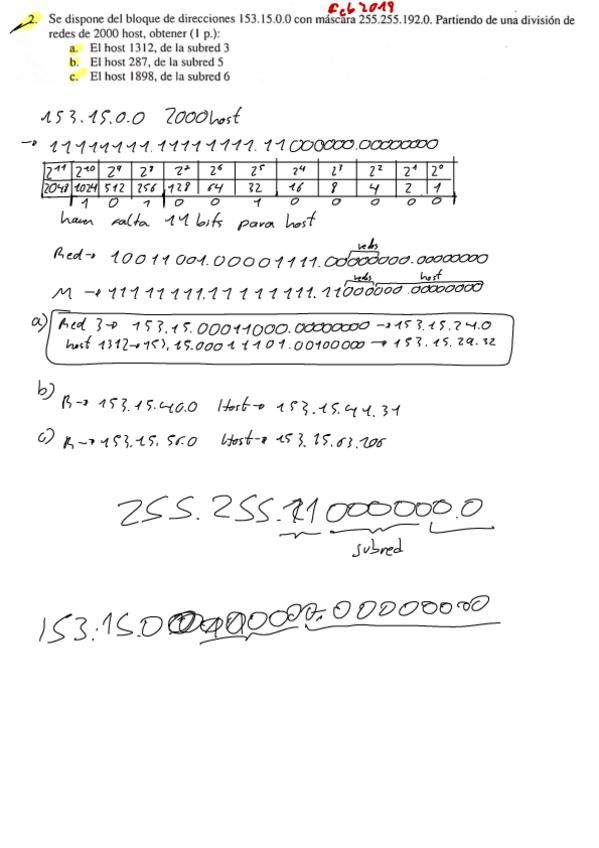 Feb 2019
2. Se dispone del bloque de direcciones 153.15.0.0 con máscara 255.255.192.0. Partiendo de una división de
redes de 2000 host, obtener (1 p.):
a. El host 1312, de la subred 3
b. El host 287, de la subred 5
c. El host 1898, de la subred 6
153.15.0.0 2000host
→ 11111111.11111111.11000000.00000000
2¹¹ 2¹⁰ 2⁹ 2⁸ 2⁷ 2⁶ 2⁵ 2⁴ 2³ 2² 2¹ 2⁰
2048 1024 512 256 128 64 32 16 8 4 2 1
1 0 1 0 0 1 0 0 0 0 0
hacen falta 11 bits para host
redes
Red→ 10011001.00001111.00000000.00000000
redes host
M → 11111111.11111111.11000000.00000000
a) Red 3→ 153.15.00011000.00000000 → 153.15.24.0
host 1312→ 153.15.00011101.00100000 → 153.15.29.32
b) R→ 153.15.40.0 Host→ 153.15.41.31
c) R→ 153.15.56.0 Host→ 153.15.63.106
255.255.11000000.0
subred